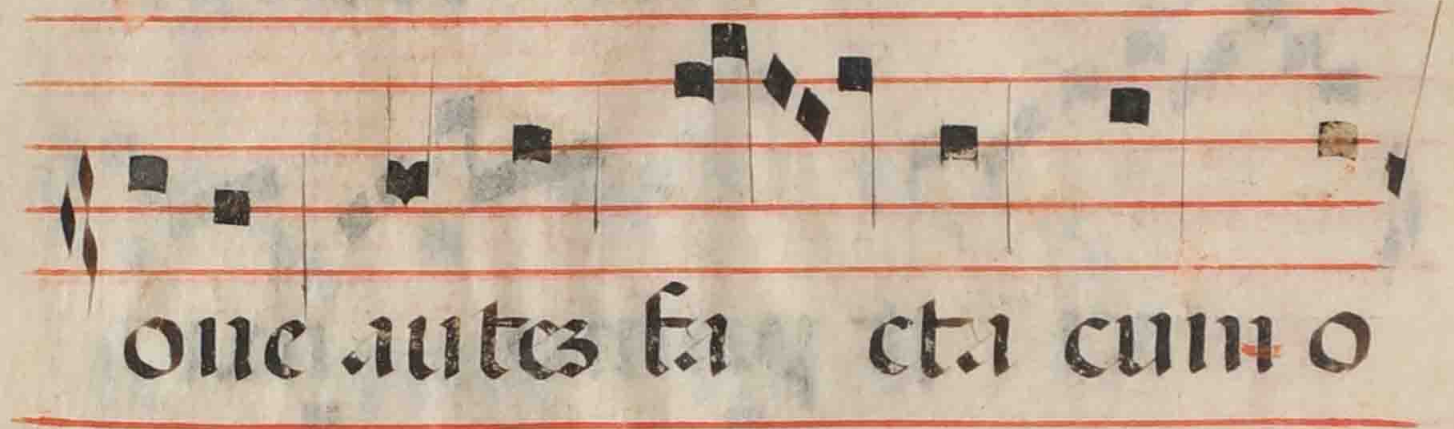 one autez fa cta cum o